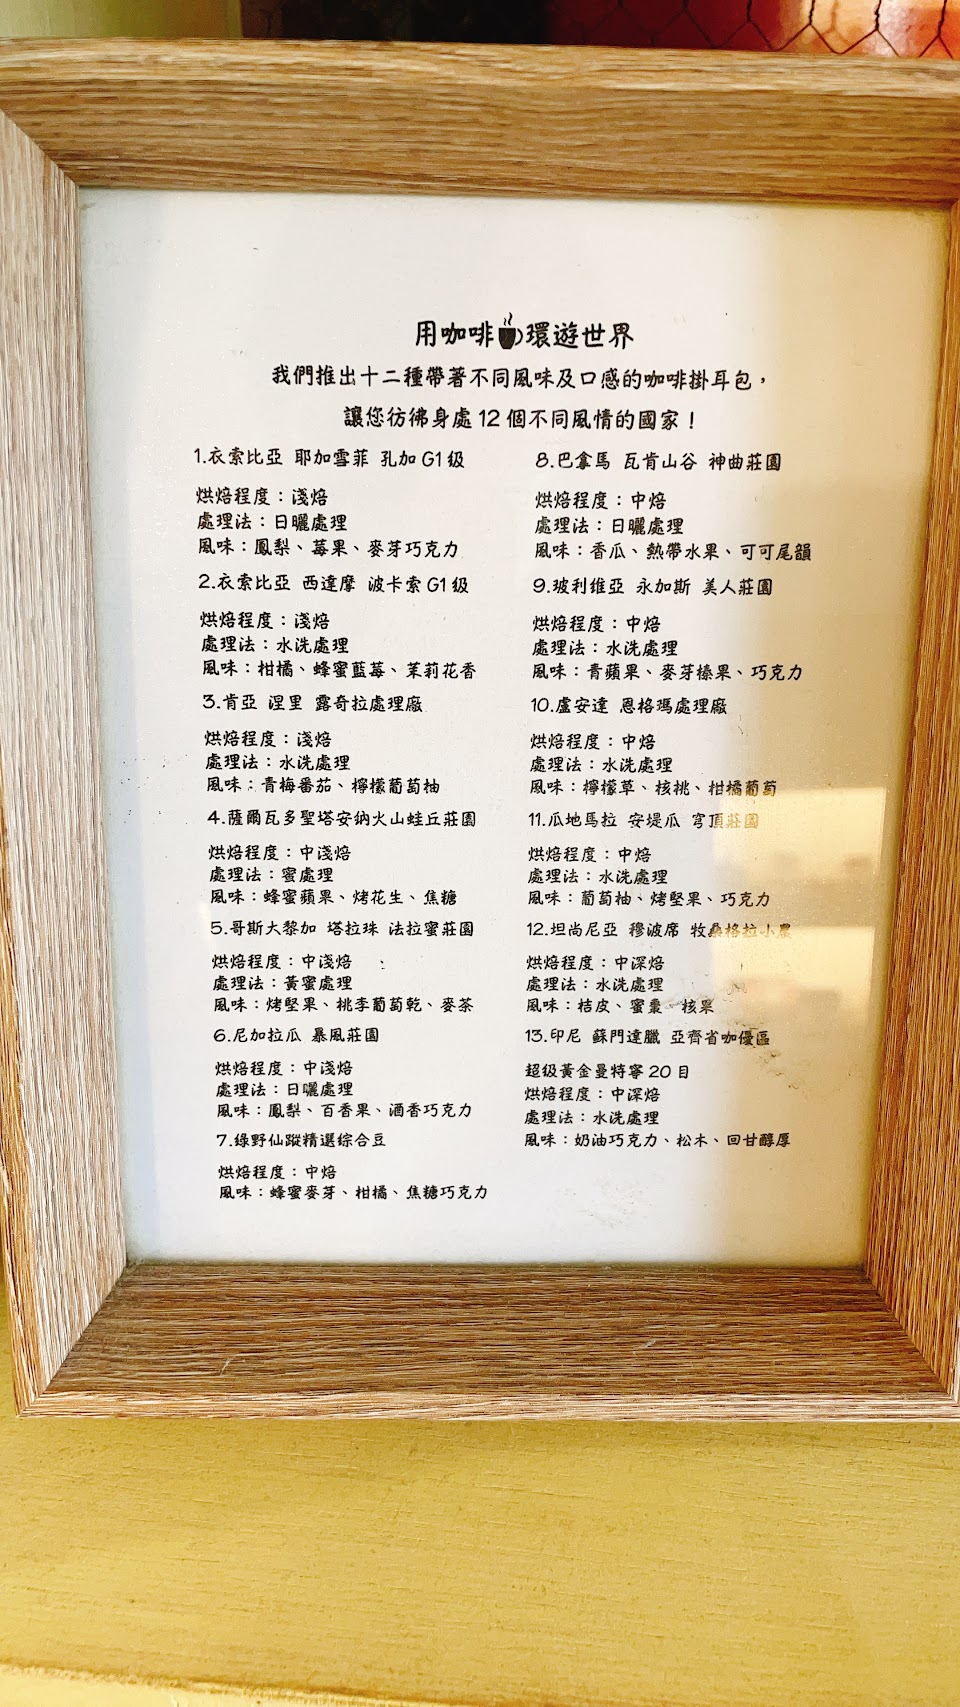 用咖啡環遊世界
我們推出十二種帶著不同風味及口感的咖啡掛耳包，
讓您彷彿身處 12 個不同風情的國家！
1.衣索比亞 耶加雪菲 孔加 G1 級
烘焙程度：淺焙
處理法：日曬處理
風味：鳳梨、莓果、麥芽巧克力
2.衣索比亞 西達摩 波卡索 G1 級
烘焙程度：淺焙
處理法：水洗處理
風味：柑橘、蜂蜜藍莓、茉莉花香
3.肯亞 涅里 露奇拉處理廠
烘焙程度：淺焙
處理法：水洗處理
風味：青梅番茄、檸檬葡萄柚
4.薩爾瓦多聖塔安納火山蛙丘莊園
烘焙程度：中淺焙
處理法：蜜處理
風味：蜂蜜蘋果、烤花生、焦糖
5.哥斯大黎加 塔拉珠 法拉蜜莊園
烘焙程度：中淺焙
處理法：黃蜜處理
風味：烤堅果、桃李葡萄乾、麥茶
6.尼加拉瓜 暴風莊園
烘焙程度：中淺焙
處理法：日曬處理
風味：鳳梨、百香果、酒香巧克力
7.綠野仙蹤精選綜合豆
烘焙程度：中焙
風味：蜂蜜麥芽、柑橘、焦糖巧克力
8.巴拿馬 瓦肯山谷 神曲莊園
烘焙程度：中焙
處理法：日曬處理
風味：香瓜、熱帶水果、可可尾韻
9.玻利維亞 永加斯 美人莊園
烘焙程度：中焙
處理法：水洗處理
風味：青蘋果、麥芽榛果、巧克力
10.盧安達 恩格瑪處理廠
烘焙程度：中焙
處理法：水洗處理
風味：檸檬草、核桃、柑橘葡萄
11.瓜地馬拉 安堤瓜 穹頂莊園
烘焙程度：中焙
處理法：水洗處理
風味：葡萄柚、烤堅果、巧克力
12.坦尚尼亞 穆波席 牧桑格拉小農
烘焙程度：中深焙
處理法：水洗處理
風味：桔皮、蜜棗、核果
13.印尼 蘇門達臘 亞齊省咖優區
超級黃金曼特寧 20 目
烘焙程度：中深焙
處理法：水洗處理
風味：奶油巧克力、松木、回甘醇厚